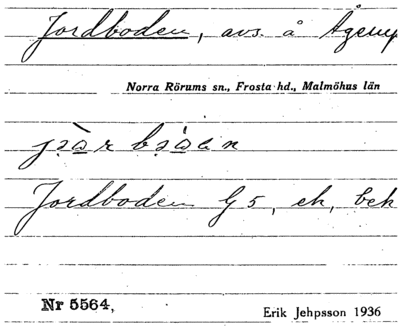 Jordboden, avs. å
Norra Rörums sn., Frosta hd., Malmöhus län
Jordboden G5, ek, bek
Nr 5564, Erik Jehpsson 1936